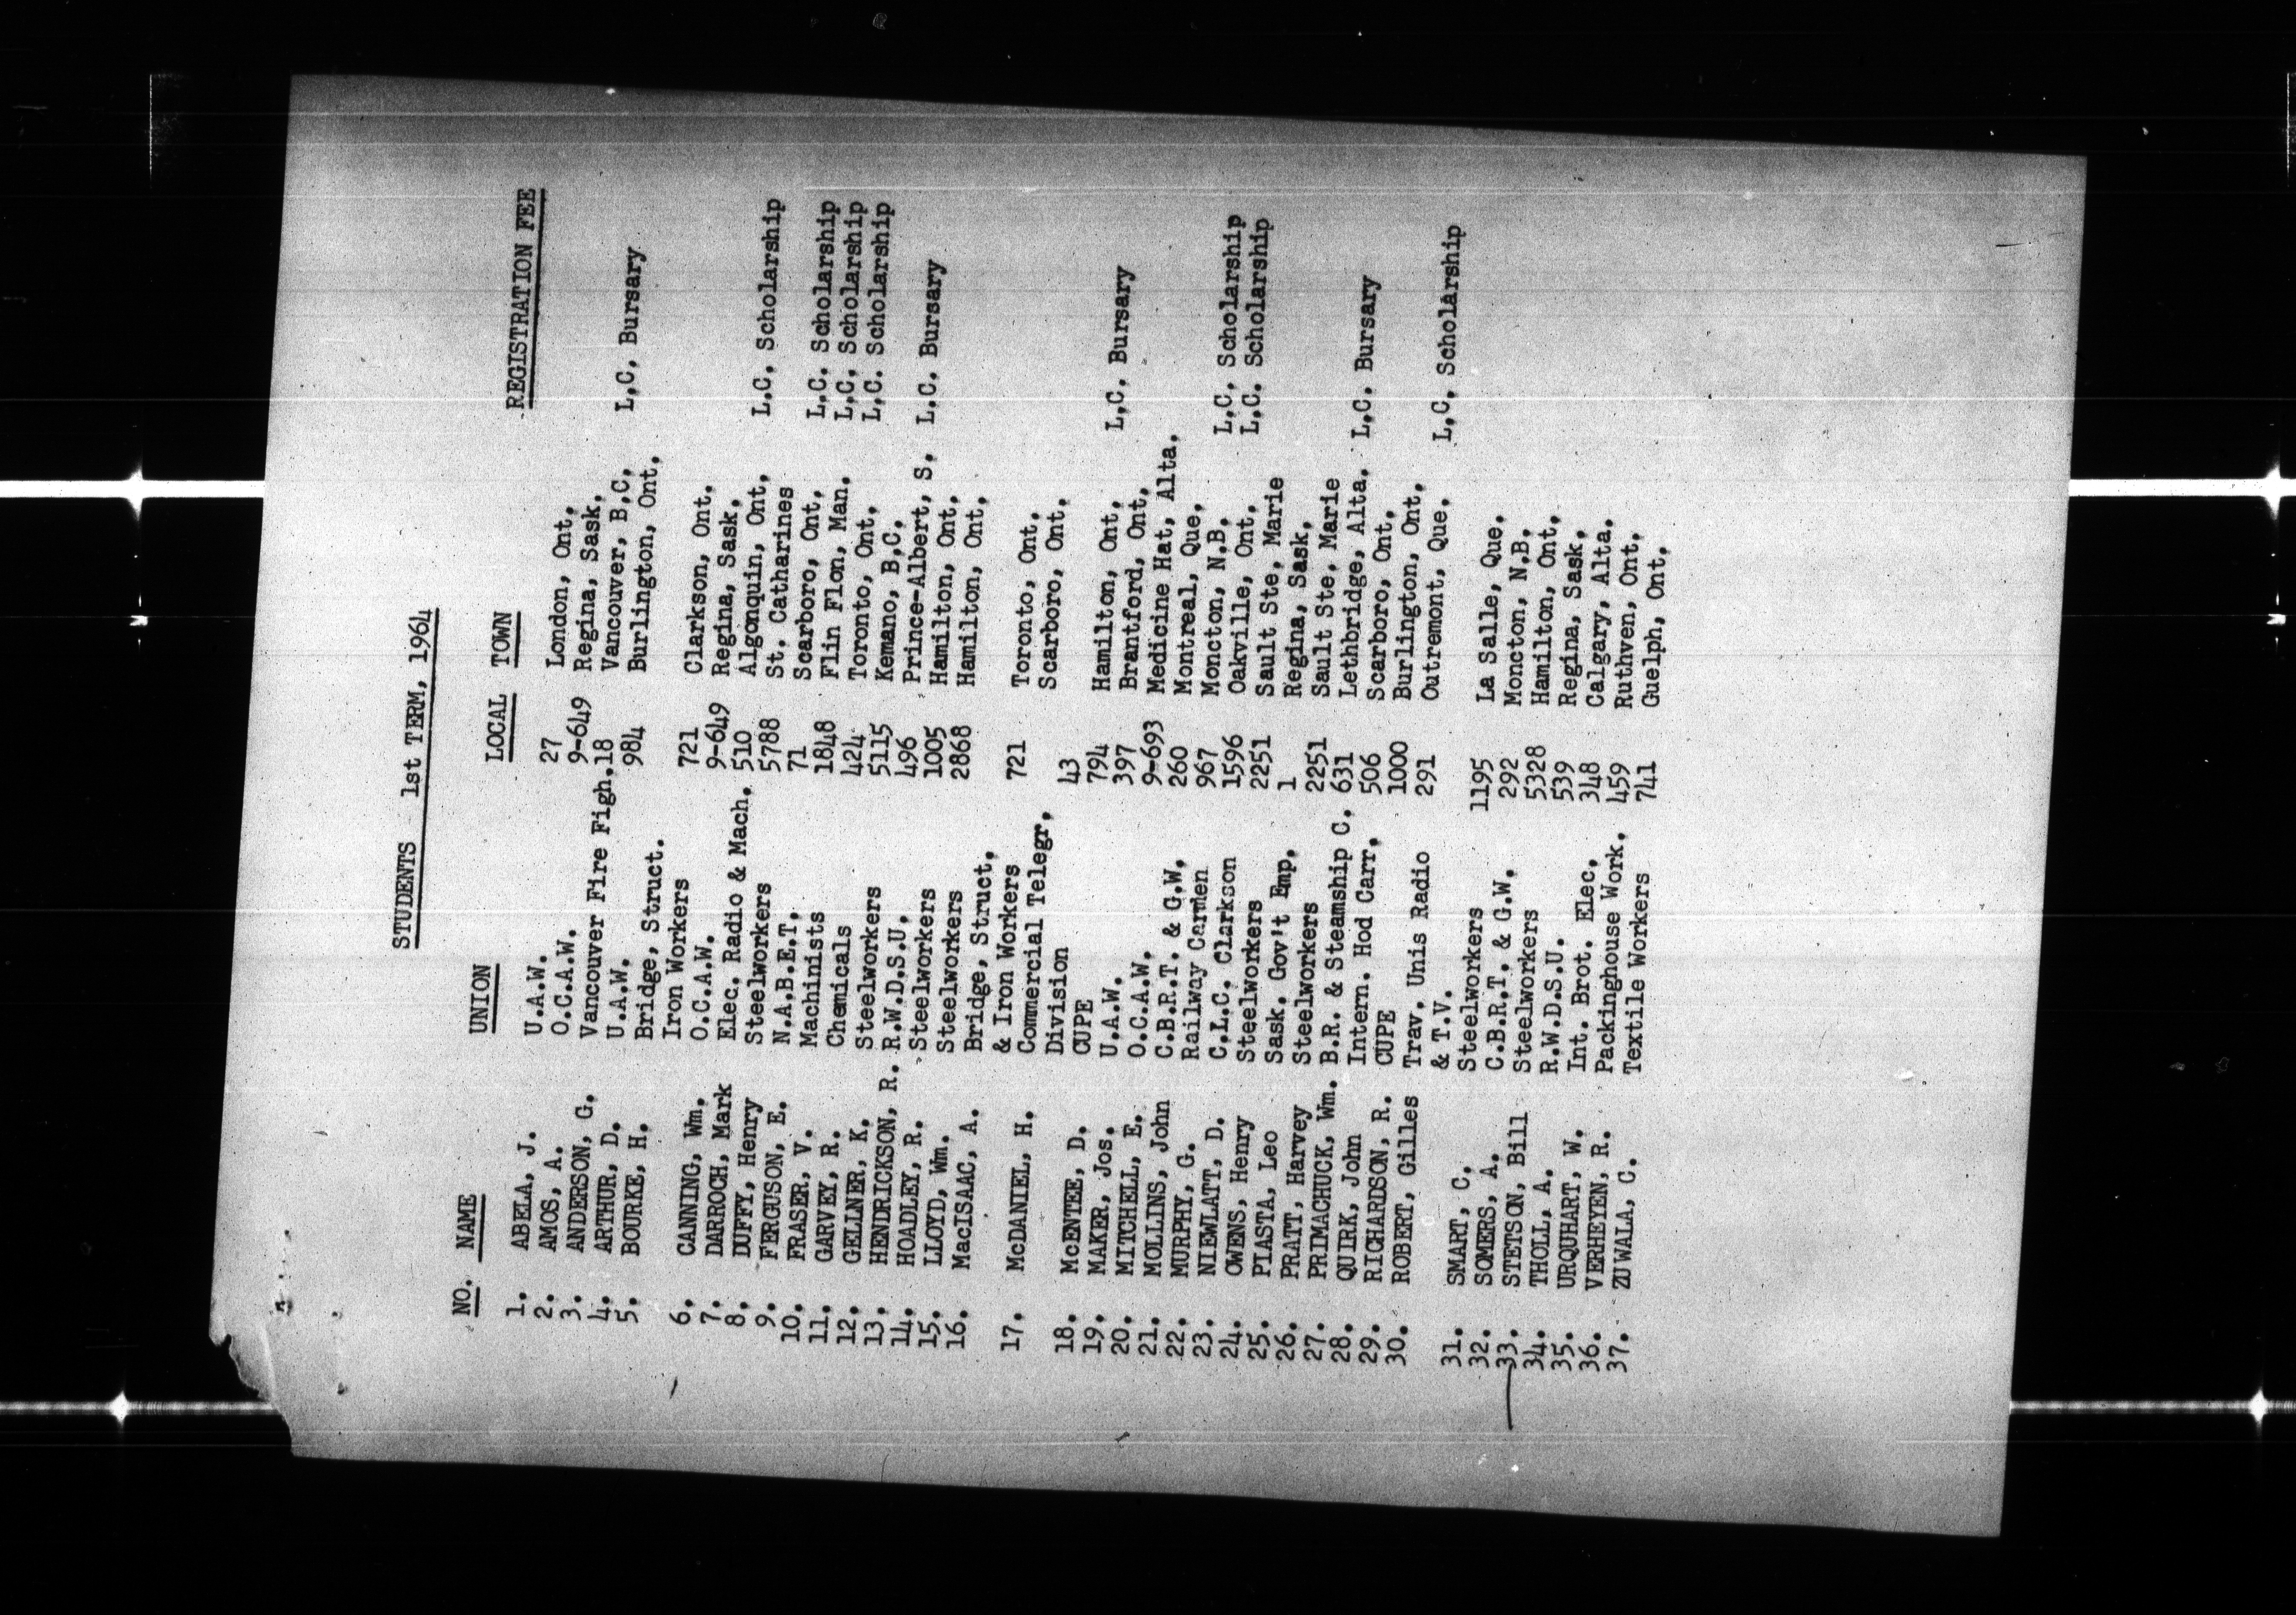 STUDENTS 1st TERM, 1964
NO. NAME UNION LOCAL TOWN REGISTRATION FEE
1. ABELA, J. U.A.W. 27 London, Ont.
2. AMOS, A. O.C.A.W. 9-649 Regina, Sask.
3. ANDERSON, G. Vancouver Fire Figh. 18 Vancouver, B.C. L.C. Bursary
4. ARTHUR, D. U.A.W. 984 Burlington, Ont.
5. BOURKE, H. Bridge, Struct.
Iron Workers 721 Clarkson, Ont.
6. CANNING, Wm. O.C.A.W. 9-649 Regina, Sask.
7. DARROCH, Mark Elec. Radio & Mach. 510 Algonquin, Ont. L.C. Scholarship
8. DUFFY, Henry Steelworkers 5788 St. Catharines
9. FERGUSON, E. N.A.B.E.T. 71 Scarboro, Ont. L.C. Scholarship
10. FRASER, V. Machinists 1848 Flin Flon, Man. L.C. Scholarship
11. GARVEY, R. Chemicals 424 Toronto, Ont. L.C. Scholarship
12. GELLNER, K. Steelworkers 5115 Kemano, B.C.
13. HENDRICKSON, R. R.W.D.S.U. 496 Prince-Albert, S. L.C. Bursary
14. HOADLEY, R. Steelworkers 1005 Hamilton, Ont.
15. LLOYD, Wm. Steelworkers 2868 Hamilton, Ont.
16. MacISAAC, A. Bridge, Struct.
& Iron Workers 721 Toronto, Ont.
17. McDANIEL, H. Commercial Telegr. Scarboro, Ont.
Division 43
18. McENTEE, D. CUPE 794 Hamilton, Ont. L.C. Bursary
19. MAKER, Jos. U.A.W. 397 Brantford, Ont.
20. MITCHELL, E. O.C.A.W. 9-693 Medicine Hat, Alta.
21. MOLLINS, John C.B.R.T. & G.W. 260 Montreal, Que.
22. MURPHY, G. Railway Carmen 967 Moncton, N.B. L.C. Scholarship
23. NIEWLATT, D. C.L.C. Clarkson 1596 Oakville, Ont. L.C. Scholarship
24. OWENS, Henry Steelworkers 2251 Sault Ste. Marie
25. PIASTA, Leo Sask. Gov't Emp. 1 Regina, Sask.
26. PRATT, Harvey Steelworkers 2251 Sault Ste. Marie
27. PRIMACHUCK, Wm. B.R. & Steamship C. 631 Lethbridge, Alta. L.C. Bursary
28. QUIRK, John Intern. Hod Carr. 506 Scarboro, Ont.
29. RICHARDSON, R. CUPE 1000 Burlington, Ont.
30. ROBERT, Gilles Trav. Unis Radio 291 Outremont, Que. L.C. Scholarship
& T.V.
31. SMART, C. Steelworkers 1195 La Salle, Que.
32. SOMERS, A. C.B.R.T. & G.W. 292 Moncton, N.B.
33. STETSON, Bill Steelworkers 5328 Hamilton, Ont.
34. THOLL, A. R.W.D.S.U. 539 Regina, Sask.
35. URQUHART, W. Int. Brot. Elec. 348 Calgary, Alta.
36. VERHEYEN, R. Packinghouse Work. 459 Ruthven, Ont.
37. ZUWALA, C. Textile Workers 741 Guelph, Ont.